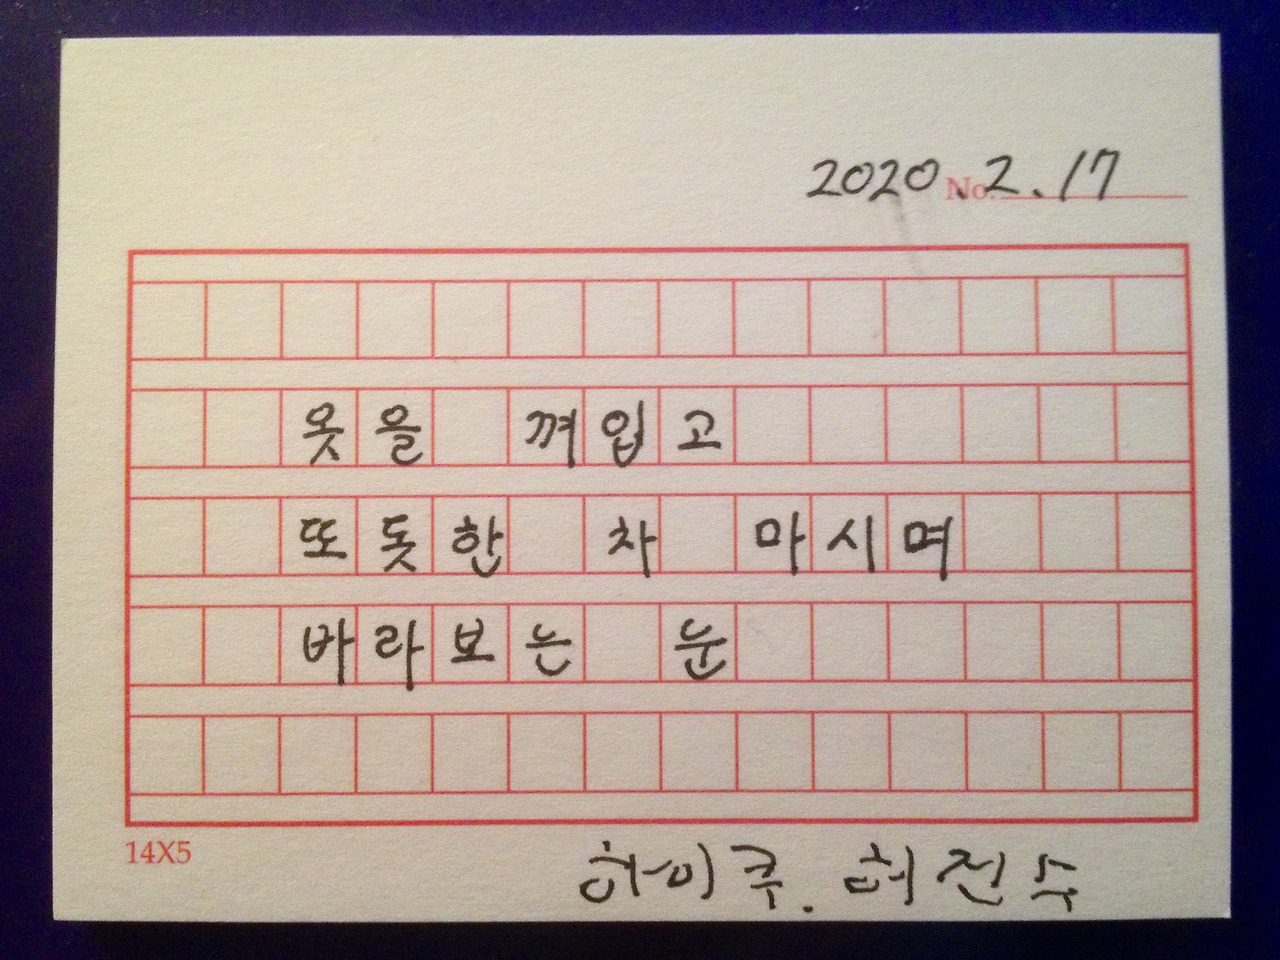 2020.2.17
No.
옷을 껴입고
또돗한 차 마시며
바라보는 눈
14X5
하이쿠. 허전수